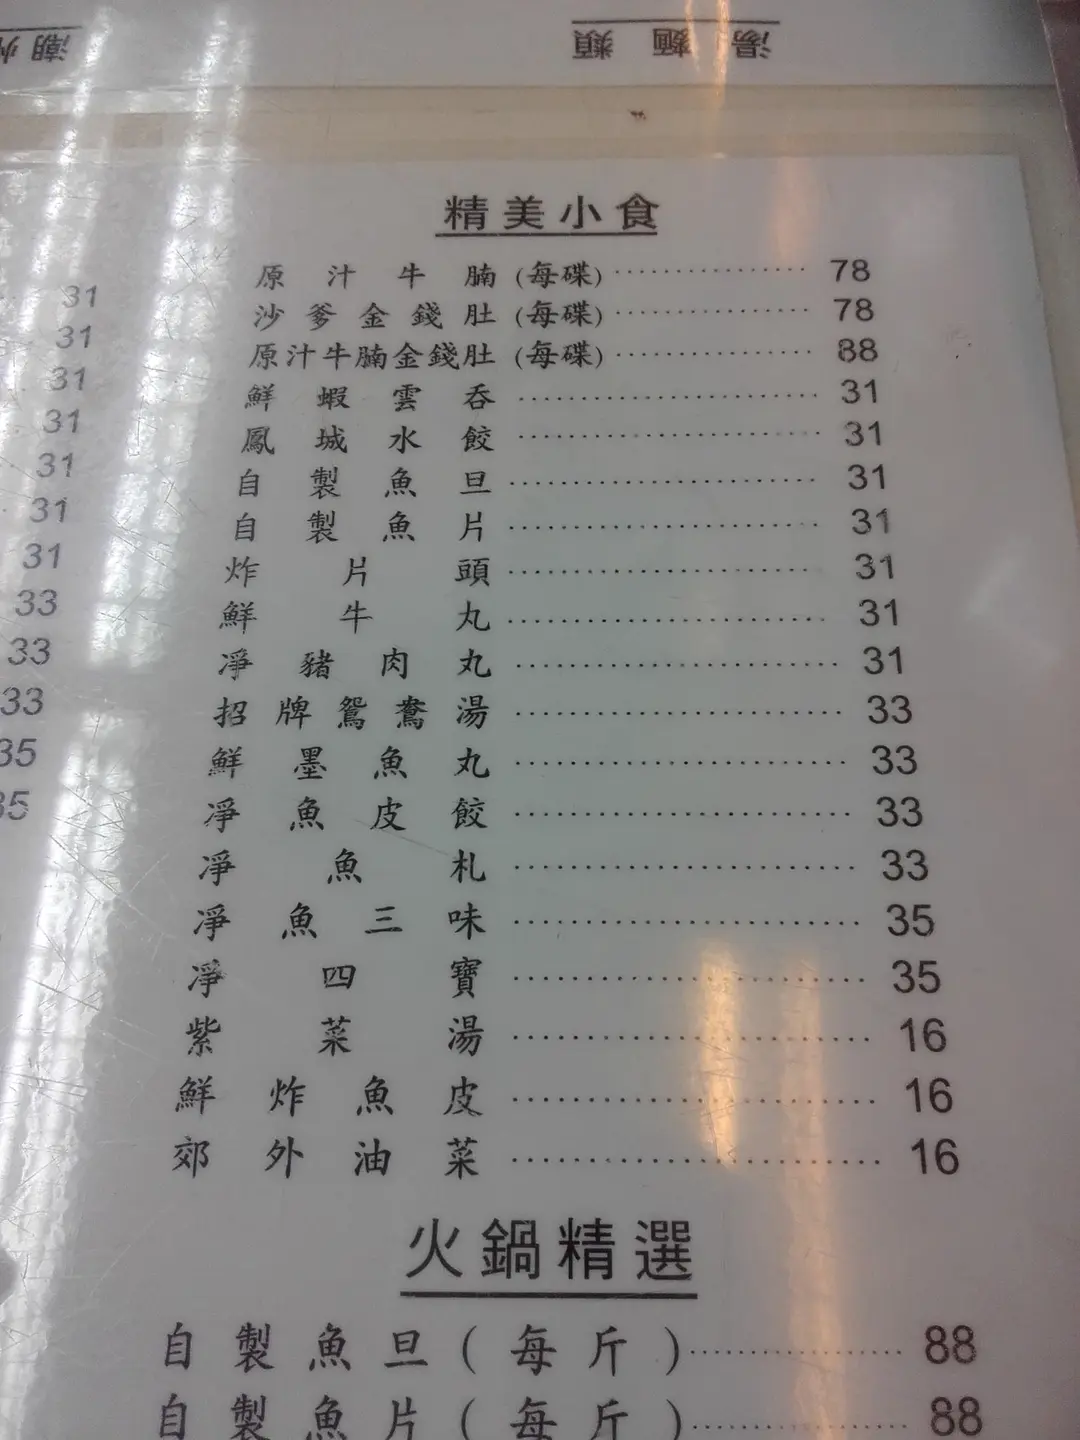 潮州
湯麵類
31
31
31
31
31
31
31
33
33
33
35
35
精美小食
原汁牛腩(每碟) 78
沙爹金錢肚(每碟) 78
原汁牛腩金錢肚(每碟) 88
鮮蝦雲吞 31
鳳城水餃 31
自製魚旦 31
自製魚片 31
炸片頭 31
鮮牛丸 31
凈豬肉丸 31
招牌鴛鴦湯 33
鮮墨魚丸 33
凈魚皮餃 33
凈魚札 33
凈魚三味 35
凈四寶 35
紫菜湯 16
鮮炸魚皮 16
郊外油菜 16
火鍋精選
自製魚旦(每斤) 88
自製魚片(每斤) 88